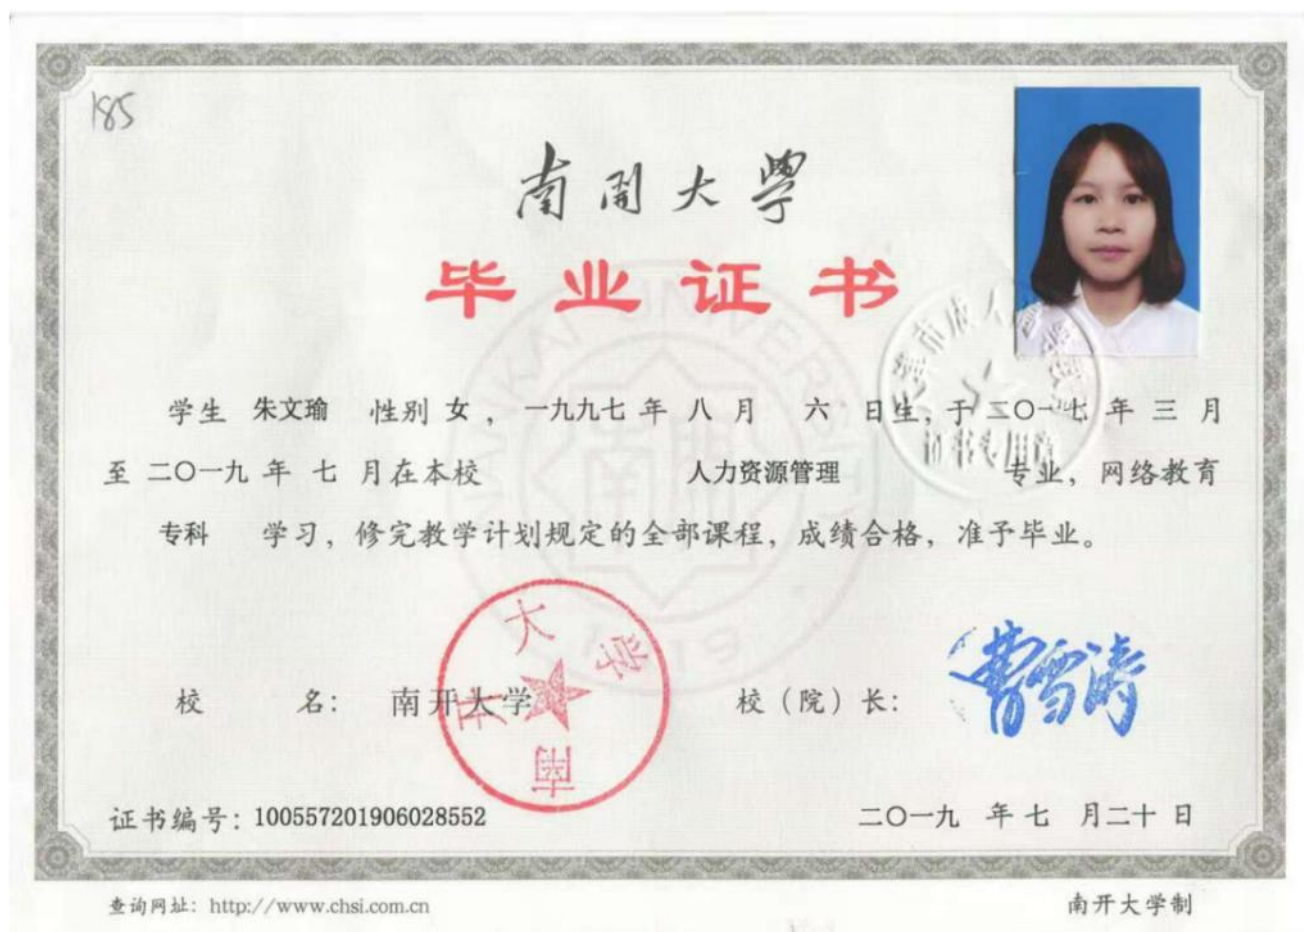 185
南開大學
毕业证书
学生 朱文瑜 性别 女，一九九七 年 八 月 六 日生，于 二〇一七 年 三 月
至 二〇一九 年 七 月在本校 人力资源管理 专业，网络教育
专科 学习，修完教学计划规定的全部课程，成绩合格，准予毕业。
校 名： 南开大学 校（院）长： 曹雪涛
南开大学
证书编号：100557201906028552 二〇一九 年 七 月二十 日
查询网址：http://www.chsi.com.cn 南开大学制
NANKAI UNIVERSITY
南開
1919
证书专用章